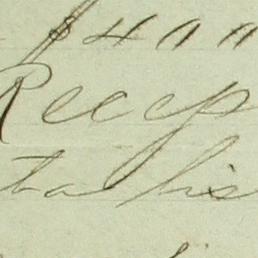 $400
Recep
tal his